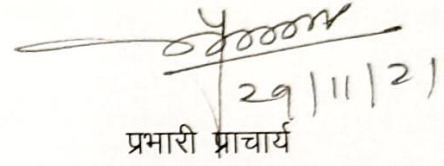 29/11/21
प्रभारी प्राचार्य